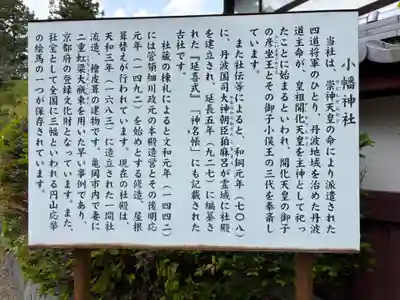 小幡神社
当社は、崇神天皇の命により派遣された
四道将軍のひとり、丹波地域を治めた丹波
道主命が、皇祖開化天皇を主神として祀っ
たことに始まるといわれ、開化天皇の御子
の彦坐王とその御子小俣王の三代を奉斎し
ています。
また社伝等によると、和銅元年(七〇八)
に、丹波国司大神朝臣狛麻呂が霊域に社殿
を建立され、延長五年(九二七)に編纂さ
れた『延喜式』「神名帳」にも記載された
古社です。
社蔵の棟札によると文和元年(一四四二)
には管領細川政元の本殿造営とその後明応
元年(一四九二)を始めとする修造、屋根
葺替えが行われています。現在の社殿は、
天和三年(一六八三)に造立された一間社
流造、檜皮葺の建物です。亀岡市内で妻に
二重虹梁大瓶束を用いた早い事例であり、
京都府の登録文化財となっています。また、
社宝として全国に三幅といわれる円山応挙
の絵馬の一つが保存されています。